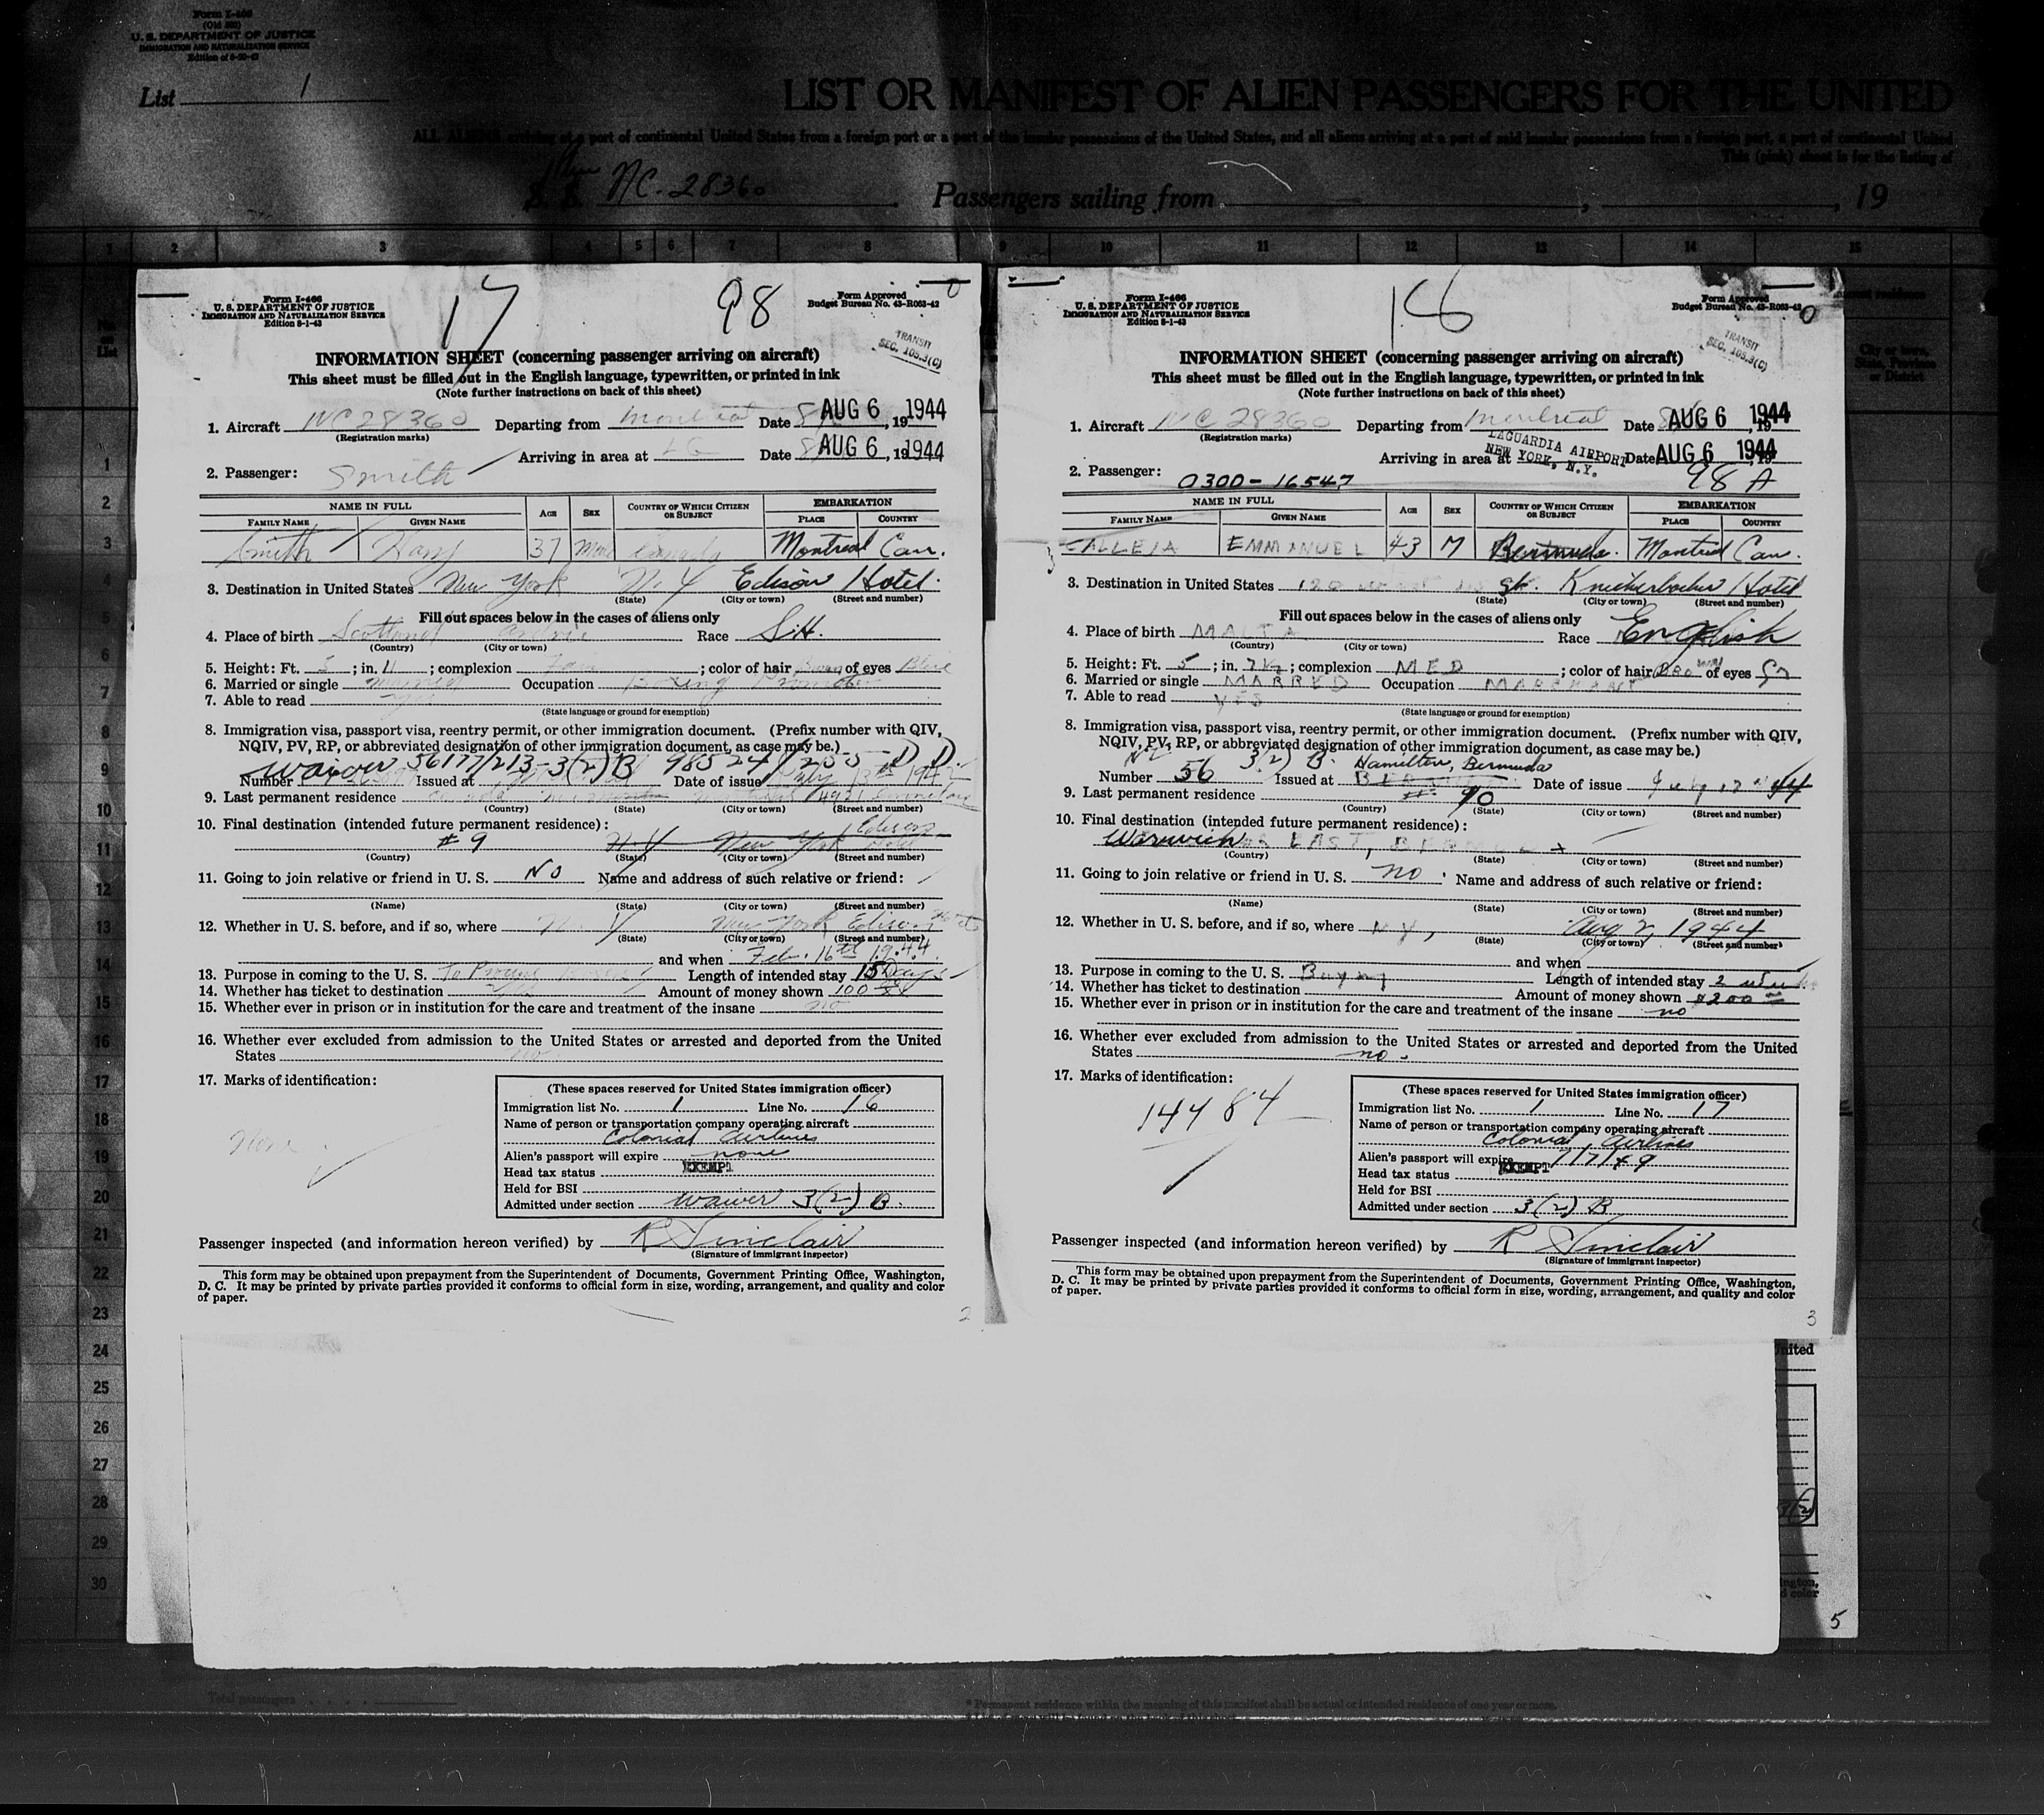 Form I-466
(Old 500)
U. S. DEPARTMENT OF JUSTICE
IMMIGRATION AND NATURALIZATION SERVICE
List 1
LIST OR MANIFEST OF ALIEN PASSENGERS FOR THE UNITED
ALL ALIENS arriving at a port of continental United States from a foreign port or a port of the insular possessions of the United States, and all aliens arriving at a port of said insular possessions from a foreign port, a port of continental United
This (pink) sheet is for the listing of
S. S. NC. 28360 Passengers sailing from , , 19
1 2 3 4 5 6 7 8 9 10 11 12 13 14 15
17 98
Form I-466
U. S. DEPARTMENT OF JUSTICE
IMMIGRATION AND NATURALIZATION SERVICE
Edition 8-1-43
Form Approved
Budget Bureau No. 43-R063-42
TRANSIT
SEC. 105.3(C)
INFORMATION SHEET (concerning passenger arriving on aircraft)
This sheet must be filled out in the English language, typewritten, or printed in ink
(Note further instructions on back of this sheet)
1. Aircraft NC 28360 Departing from Montreal Date AUG 6, 1944
(Registration marks)
Arriving in area at LG Date AUG 6, 1944
2. Passenger: Smith
NAME IN FULL AGE SEX COUNTRY OF WHICH CITIZEN OR SUBJECT EMBARKATION
FAMILY NAME GIVEN NAME PLACE COUNTRY
Smith Harry 37 Male Canada Montreal Can.
3. Destination in United States New York N.Y Edison Hotel.
(State) (City or town) (Street and number)
Fill out spaces below in the cases of aliens only
4. Place of birth Scotland Airdrie Race S.H.
(Country) (City or town)
5. Height: Ft. 5; in. 11; complexion Fair; color of hair Brown of eyes Blue
6. Married or single Married Occupation Boxing Promoter
7. Able to read Yes
(State language or ground for exemption)
8. Immigration visa, passport visa, reentry permit, or other immigration document. (Prefix number with QIV,
NQIV, PV, RP, or abbreviated designation of other immigration document, as case may be.)
Waiver 56177/213-3(2) B 98524/255 D.D.
Number Issued at Date of issue July 13th 1942
9. Last permanent residence Canada Montreal 4921
(Country) (State) (City or town) (Street and number)
10. Final destination (intended future permanent residence):
#9 N.Y New York Edison Hotel
(Country) (State) (City or town) (Street and number)
11. Going to join relative or friend in U. S. No Name and address of such relative or friend:
(Name) (State) (City or town) (Street and number)
12. Whether in U. S. before, and if so, where N. Y New York Edison Hotel
(State) (City or town) (Street and number)
and when Feb. 16th 1944.
13. Purpose in coming to the U. S. Length of intended stay 15 Days
14. Whether has ticket to destination Yes Amount of money shown 100
15. Whether ever in prison or in institution for the care and treatment of the insane no
16. Whether ever excluded from admission to the United States or arrested and deported from the United
States no
17. Marks of identification:
None
(These spaces reserved for United States immigration officer)
Immigration list No. 1 Line No. 16
Name of person or transportation company operating aircraft
Colonial Airlines
Alien's passport will expire none
Head tax status EXEMPT
Held for BSI
Admitted under section Waiver 3(2) B.
Passenger inspected (and information hereon verified) by R Sinclair
(Signature of immigrant inspector)
This form may be obtained upon prepayment from the Superintendent of Documents, Government Printing Office, Washington,
D. C. It may be printed by private parties provided it conforms to official form in size, wording, arrangement, and quality and color
of paper.
2
16
Form I-466
U. S. DEPARTMENT OF JUSTICE
IMMIGRATION AND NATURALIZATION SERVICE
Edition 8-1-43
Form Approved
Budget Bureau No. 43-R063-42
TRANSIT
SEC. 105.3(C)
INFORMATION SHEET (concerning passenger arriving on aircraft)
This sheet must be filled out in the English language, typewritten, or printed in ink
(Note further instructions on back of this sheet)
1. Aircraft NC 28360 Departing from Montreal Date AUG 6, 1944
(Registration marks)
Arriving in area at LAGUARDIA AIRPORT NEW YORK, N.Y. Date AUG 6 1944
2. Passenger: 0300-16547 98 A
NAME IN FULL AGE SEX COUNTRY OF WHICH CITIZEN OR SUBJECT EMBARKATION
FAMILY NAME GIVEN NAME PLACE COUNTRY
CALLEJA EMMANUEL 43 M Bermuda. Montreal Can.
3. Destination in United States 120 West St. Knickerbocker Hotel
(State) (City or town) (Street and number)
Fill out spaces below in the cases of aliens only
4. Place of birth MALTA Race English
(Country) (City or town)
5. Height: Ft. 5; in. 7½; complexion MED; color of hair BROWN of eyes
6. Married or single MARRED Occupation MARCHANT
7. Able to read YES
(State language or ground for exemption)
8. Immigration visa, passport visa, reentry permit, or other immigration document. (Prefix number with QIV,
NQIV, PV, RP, or abbreviated designation of other immigration document, as case may be.)
3(2) B. Hamilton, Bermuda
Number 56 Issued at Date of issue July 12 44
9. Last permanent residence # 10
(Country) (State) (Street and number)
10. Final destination (intended future permanent residence):
Warwick EAST, BERMUDA
(Country) (State) (City or town) (Street and number)
11. Going to join relative or friend in U. S. no. Name and address of such relative or friend:
(Name) (State) (City or town) (Street and number)
12. Whether in U. S. before, and if so, where N Y, Aug 2, 1944
(State) (City or town) (Street and number)
and when
13. Purpose in coming to the U. S. Buying Length of intended stay 2 weeks
14. Whether has ticket to destination Amount of money shown $200
15. Whether ever in prison or in institution for the care and treatment of the insane no
16. Whether ever excluded from admission to the United States or arrested and deported from the United
States no.
17. Marks of identification:
14484
(These spaces reserved for United States immigration officer)
Immigration list No. 1 Line No. 17
Name of person or transportation company operating aircraft
Colonial Airlines
Alien's passport will expire 7/7/49
Head tax status EXEMPT
Held for BSI
Admitted under section 3(2) B
Passenger inspected (and information hereon verified) by R Sinclair
(Signature of immigrant inspector)
This form may be obtained upon prepayment from the Superintendent of Documents, Government Printing Office, Washington,
D. C. It may be printed by private parties provided it conforms to official form in size, wording, arrangement, and quality and color
of paper.
3
1
2
3
4
5
6
7
8
9
10
11
12
13
14
15
16
17
18
19
20
21
22
23
24
25
26
27
28
29
30
5
Total passengers
* Permanent residence within the meaning of this manifest shall be actual or intended residence of one year or more.